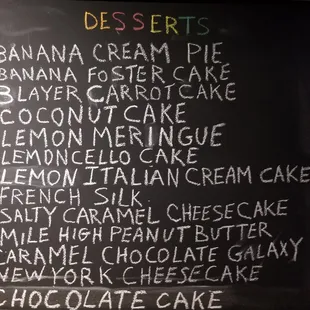 DESSERTS
BANANA CREAM PIE
BANANA FOSTER CAKE
3 LAYER CARROT CAKE
COCONUT CAKE
LEMON MERINGUE
LEMONCELLO CAKE
LEMON ITALIAN CREAM CAKE
FRENCH SILK
SALTY CARAMEL CHEESECAKE
MILE HIGH PEANUT BUTTER
CARAMEL CHOCOLATE GALAXY
NEW YORK CHEESECAKE
CHOCOLATE CAKE